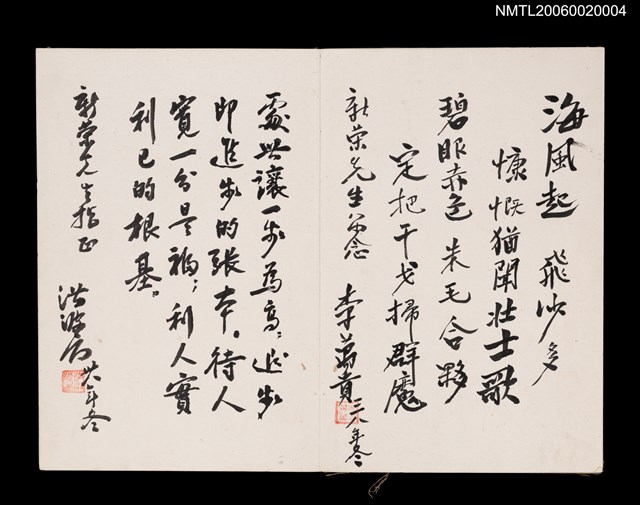 NMTL20060020004
海風起 飛沙多
慷慨猶聞壯士歌
碧眼赤色 朱毛合夥
定把干戈掃群魔
新荣先生留念
李萬賁 三八年冬
處世讓一步為高，退步
即進步的張本。待人
寬一分是福；利人實
利己的根基。
新荣先生指正
卅八年冬